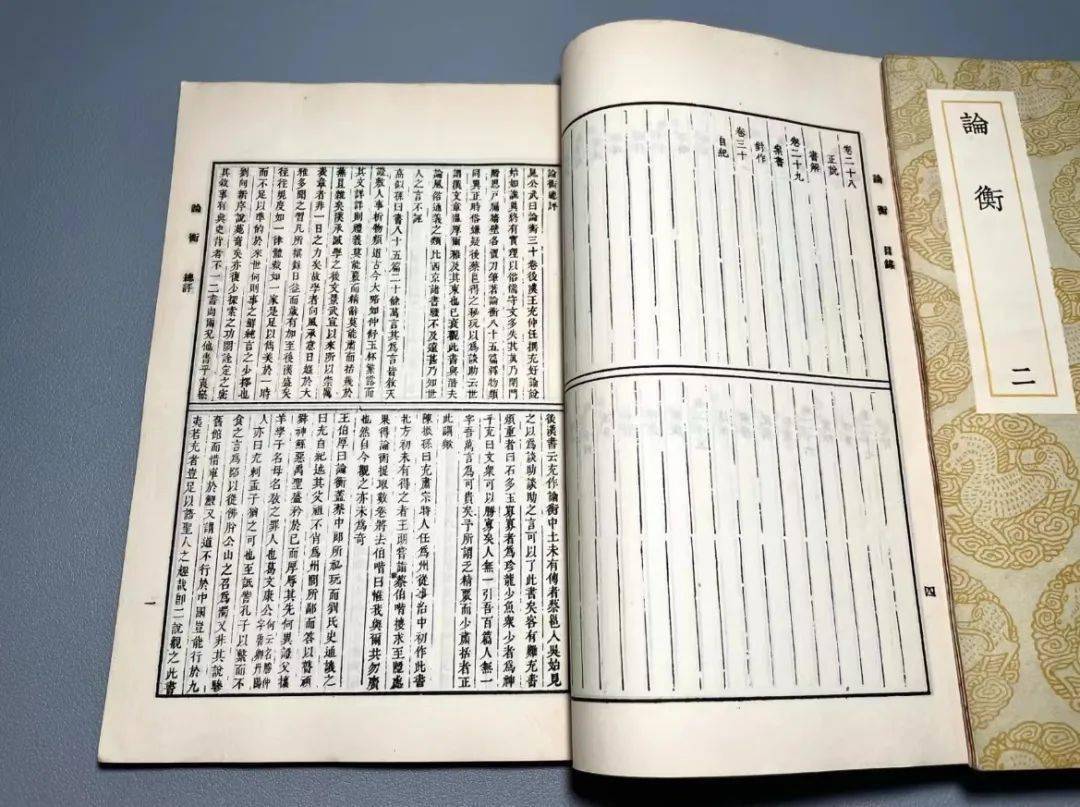 論衡
二
論衡 目錄
卷二十八
正說
書解
卷二十九
案書
對作
卷三十
自紀
四
論衡總評
晁公武曰論衡三十卷後漢王充仲任撰充好論說
始如詭異終有實理以俗儒守文多失其真乃閉門
潛思戶牖墻壁各置刀筆著論衡八十五篇釋物類
同異正時俗嫌疑後蔡邕得之秘玩以爲談助云世
謂漢文章溫厚爾雅及其東也已衰觀此書與潛夫
論風俗通義之類比西京諸書驟不及遠甚乃知世
人之言不誣
高似孫曰書八十五篇二十餘萬言其爲言皆敘天
證敷人事析物類道古今大略如仲舒玉杯繁露而
其文詳詳則禮義莫能覈而精辭莫能肅而括幾於
蕪且雜矣漢承滅學之後文景武宣以來所以崇厲
表章者非一日之力矣故學者向風承意日趨於大
雅多聞之習凡所撰錄日益而歲有加至後漢盛矣
往往規度如一律體裁如一家是足以雋美於一時
而不足以準的於來世何則事之鮮純言之少擇也
劉向新序說苑奇矣亦復少探索之功闕詮定之密
其敘事有與史背者不一二書尚爾況他書乎袁崧
後漢書云充作論衡中土未有傳者蔡邕入吳始見
之以爲談助談助之言可以了此書矣客有難充書
煩重者曰石多玉寡寡者爲珍龍少魚衆少者爲神
乎充曰文衆可以勝寡矣人無一引吾百篇人無一
字吾萬言爲可貴矣予所謂乏精覈而少肅括者正
此謂歟
陳振孫曰充肅宗時人任爲州從事治中初作此書
北方初未有得之者王朗嘗詣蔡伯喈搜求至隱處
果得論衡捉取數卷將去伯喈曰惟我與爾共勿廣
也然自今觀之亦未爲奇
王伯厚曰論衡蓋蔡中郎所祕玩而劉氏史通譏之
曰充自紀述其父祖不肖爲州閭所鄙而答以瞽頑
舜神鯀惡禹聖盛矜於己而厚辱其先何異證父攘
羊學子名母名教之罪人也葛文康公何云名勝仲字魯卿丹陽
人亦曰充刺孟子猶之可也至詆訾孔子以繫而不
食之言爲鄙以從佛肸公山之召爲濁又非其說驂
舊館而惜車於鯉又謂道不行於中國豈能行於九
夷若充者豈足以語聖人之趣哉即二說觀之此書
論衡 總評
一